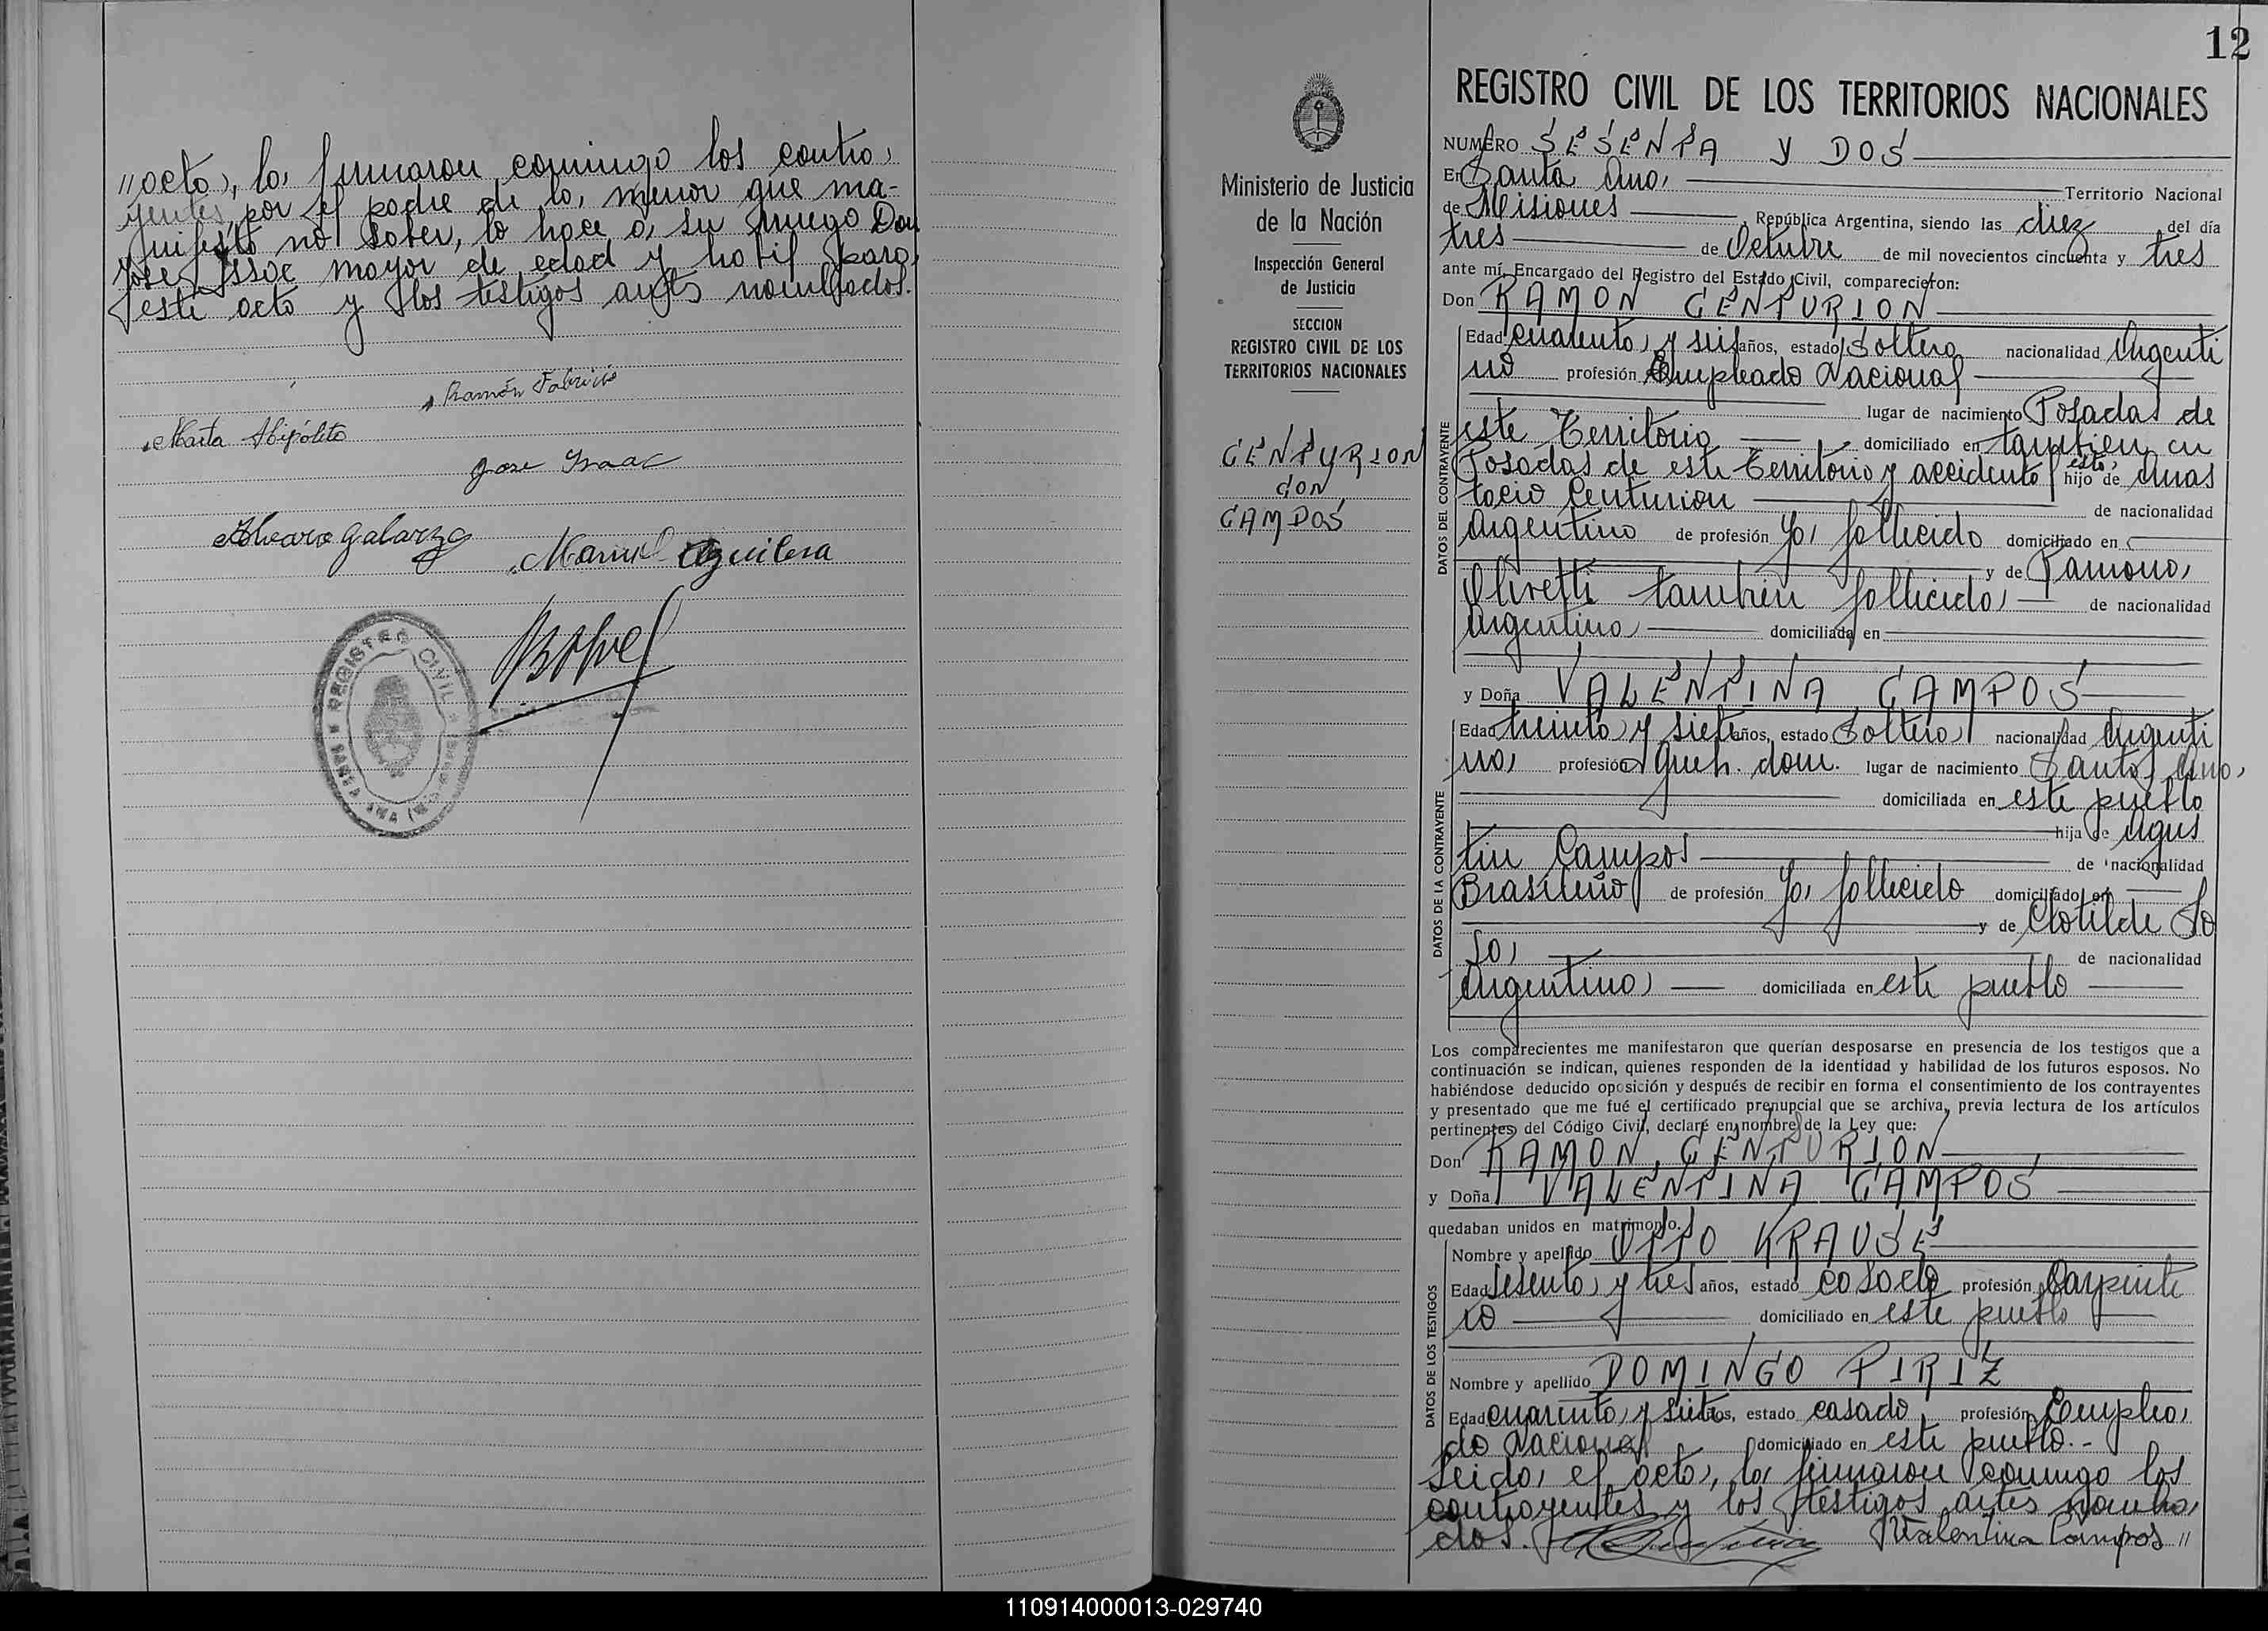 //acta, la firmaron conmigo los contra,
yentes, por el padre de la menor que ma-
nifestó no saber, lo hace a su ruego Don
José Isaac mayor de edad y habil para
este acto y los testigos antes nombrados.
Ramón Fabricio
Marta Hipólito
Jose Isaac
Alvaro Galarza
Manuel Aguilera
REGISTRO CIVIL
SANTA ANA
12
REGISTRO CIVIL DE LOS TERRITORIOS NACIONALES
NUMERO SESENTA Y DOS
En Santa Ana, Territorio Nacional
de Misiones, República Argentina, siendo las diez del día
tres de Octubre de mil novecientos cincuenta y tres
ante mí, Encargado del Registro del Estado Civil, comparecieron:
Don RAMON CENTURION
Edad cuarenta y seis años, estado soltero nacionalidad Argenti
no profesión Empleado Nacional
lugar de nacimiento Posadas de
este Territorio domiciliado en tambien en
Posadas de este Territorio y accidental esta, hijo de Anas
tacio Centurion de nacionalidad
Argentino de profesión ya fallecido domiciliado en
y de Ramona
Olivetti tambien fallecida de nacionalidad
Argentina domiciliada en
y Doña VALENTINA CAMPOS
Edad treinta y siete años, estado soltera nacionalidad Argenti
na, profesión queh. dom. lugar de nacimiento Santa Ana,
domiciliada en este pueblo
hija de Agus
tin Campos de nacionalidad
Brasileño de profesión ya fallecido domiciliado en
y de Clotilde So
sa de nacionalidad
Argentina domiciliada en este pueblo
Los comparecientes me manifestaron que querían desposarse en presencia de los testigos que a
continuación se indican, quienes responden de la identidad y habilidad de los futuros esposos. No
habiéndose deducido oposición y después de recibir en forma el consentimiento de los contrayentes
y presentado que me fué el certificado prenupcial que se archiva, previa lectura de los artículos
pertinentes del Código Civil, declaré en nombre de la Ley que:
Don RAMON CENTURION
y Doña VALENTINA CAMPOS
quedaban unidos en matrimonio.
Nombre y apellido OTTO KRAUSE
Edad sesenta y tres años, estado casado profesión Carpinte
ro domiciliado en este pueblo
Nombre y apellido DOMINGO PIRIZ
Edad cuarenta y siete años, estado casado profesión Emplea,
do Nacional domiciliado en este pueblo.-
Leida, el acta, la firmaron conmigo los
contrayentes y los testigos antes nombra,
dos. Valentina Campos //
Ministerio de Justicia
de la Nación
Inspección General
de Justicia
SECCION
REGISTRO CIVIL DE LOS
TERRITORIOS NACIONALES
CENTURION
CON
CAMPOS
DATOS DEL CONTRAYENTE
DATOS DE LA CONTRAYENTE
DATOS DE LOS TESTIGOS
110914000013-029740